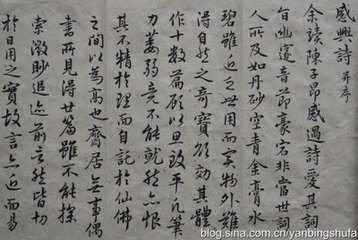 感興詩 并序
余讀陳子昂感遇詩愛其詞
旨幽邃音節豪宕非當世詞
人所及如丹砂空青金膏水
碧雖近乏世用而實物外難
得自然之奇寶欲效其體
作十數篇顧以思致平凡筆
力萎弱竟不能就然亦恨
其不精於理而自託於仙佛
之間以為高也齋居無事偶
書所見得廿篇雖不能探
索微眇追迹前言然皆切
於日用之實故言亦近而易
blog.sina.com.cn/yanbingshufa